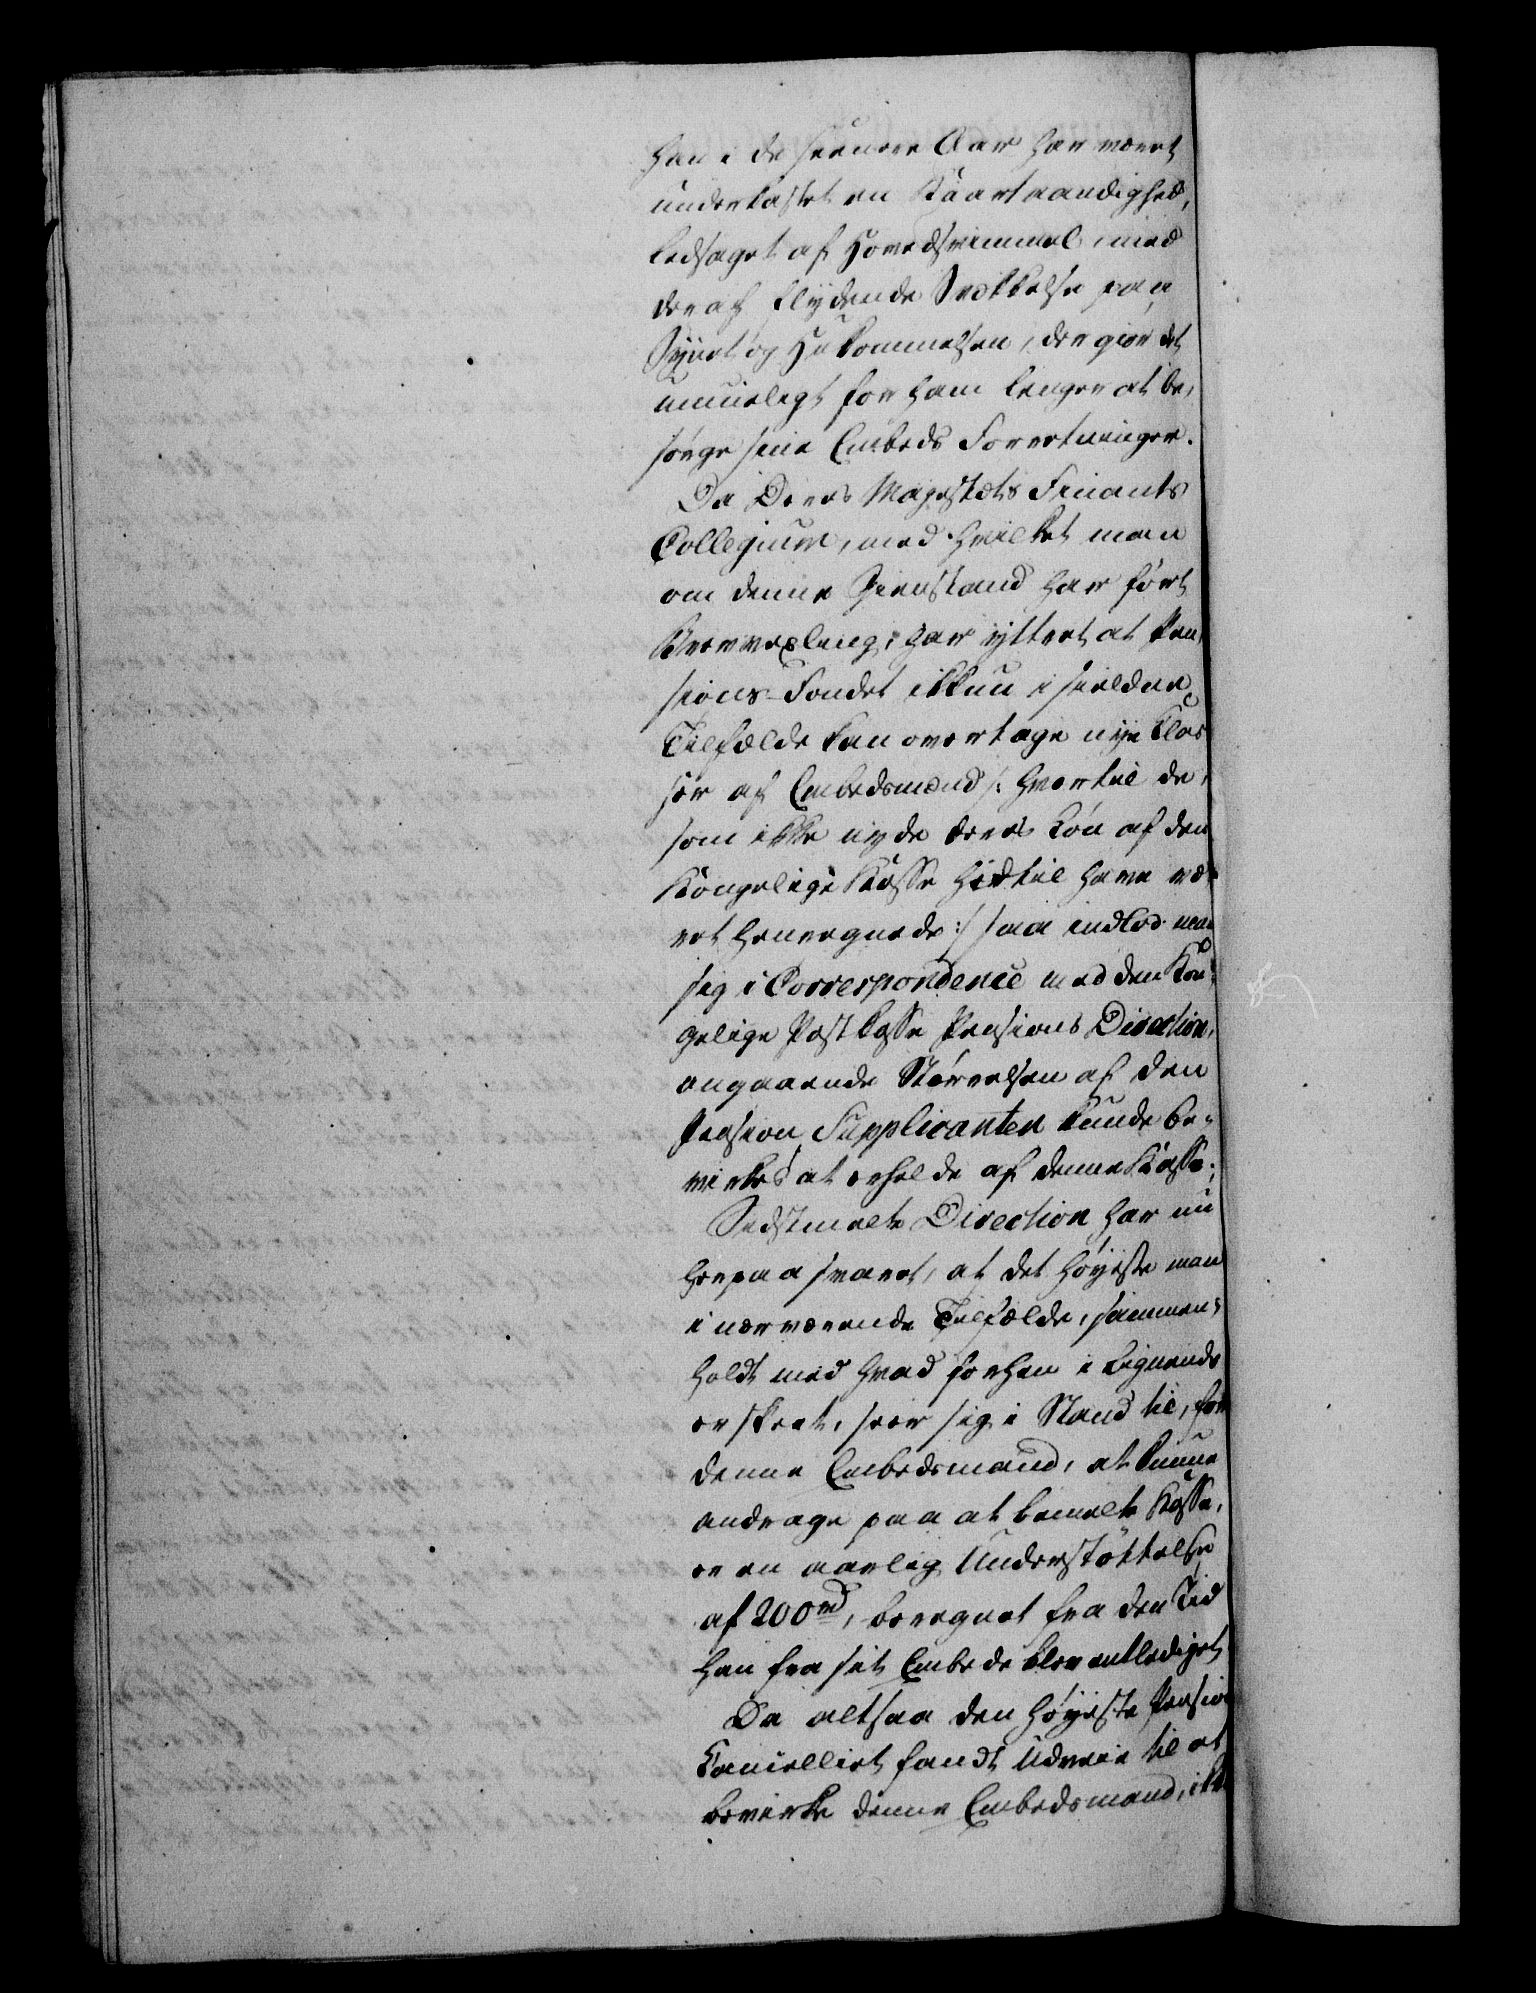 han i de seenere Aar har værет
underkastet en Kaartaandighed,
ledsaget af Hovedsvimmel, med
deraf flydende Svækkelse paa
Synet og Hukommelsen, der giør det
umueligt for ham længer at be-
sørge sine Embeds Forretninger.
Da Deres Majestæts Finants
Collegium, med hvilket man
om denne Gienstand har ført
Brevvexling, har yttret at Pen-
sions-Fondet ikkun i sieldne
Tilfælde kan overtage nye Clas-
ser af Embedsmænd /: hvortil de,
som ikke nyde deres Løn af den
Kongelige Kasse hidtil have væ-
ret henregnede :/ saa indlod man
sig i Correspondence med den Kon-
gelige Postkasse Pensions Direction,
angaaende Størrelsen af den
Pension Supplicanten kunde be-
virkes at erholde af denne Kasse.
Sidstmelte Direction har nu
herpaa svaret, at det høyeste man
i nærværende Tilfælde, sammen-
holdt med hvad forhen i lignende
er skeet, seer sig i Stand til, for
denne Embedsmand, at kunne
andrage paa at bemelte Kasse,
er en aarlig Understøttelse
af 200 rd, beregnet fra den Tid
han fra sit Embede blev entlediget
Da altsaa den høyeste Pension
Cancelliet fandt Udveie til at
bevirke denne Embedsmand, ikke